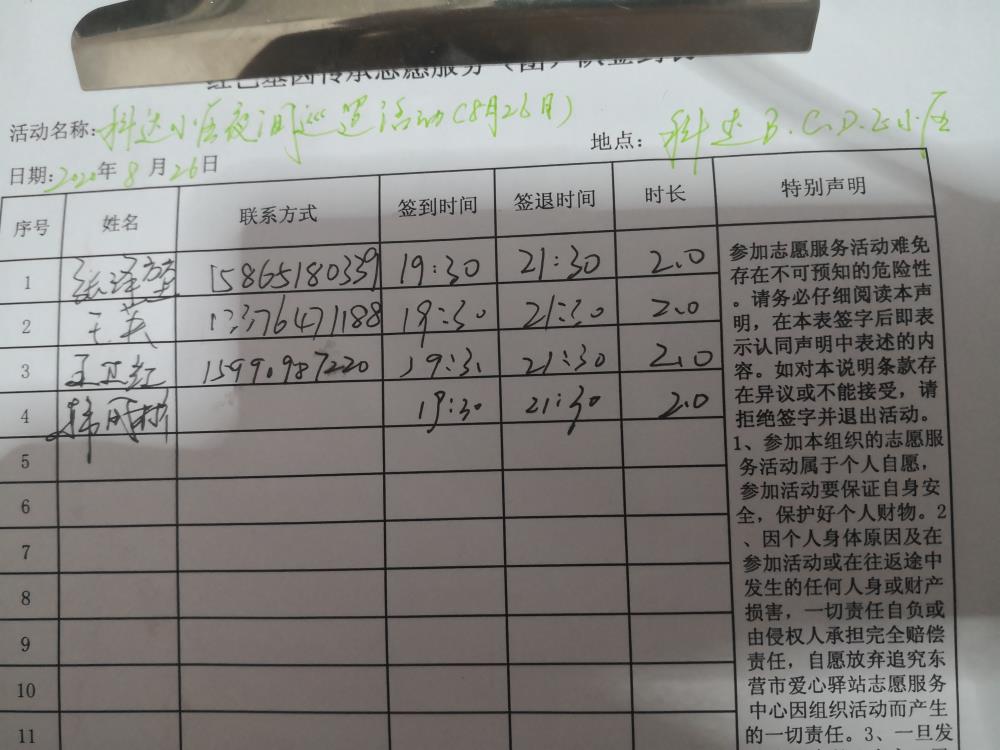 红色基因传承志愿服务（团）队签到表
活动名称：科达小区夜间巡逻活动（8月26日）
地点：科达B.C.D.E小区
日期：2020年8月26日
序号 姓名 联系方式 签到时间 签退时间 时长 特别声明
1 15865180339 19:30 21:30 2.0
2 王英 13376471188 19:30 21:30 2.0
3 王卫红 15990987220 19:30 21:30 2.0
4 19:30 21:30 2.0
5
6
7
8
9
10
11
参加志愿服务活动难免
存在不可预知的危险性
。请务必仔细阅读本声
明，在本表签字后即表
示认同声明中表述的内
容。如对本说明条款存
在异议或不能接受，请
拒绝签字并退出活动。
1、参加本组织的志愿服
务活动属于个人自愿，
参加活动要保证自身安
全，保护好个人财物。2
、因个人身体原因及在
参加活动或在往返途中
发生的任何人身或财产
损害，一切责任自负或
由侵权人承担完全赔偿
责任，自愿放弃追究东
营市爱心驿站志愿服务
中心因组织活动而产生
的一切责任。3、一旦发